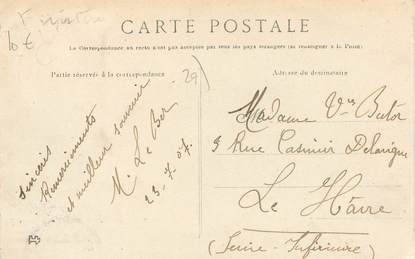 10 €
CARTE POSTALE
La Correspondance au recto n'est pas acceptée par tous les pays étrangers (se renseigner à la Poste)
Partie réservée à la correspondance
29
Adresse du destinataire
Sincères
Remerciements
et meilleur souvenir
M. Le Ber
23-7-07.
Madame Vve
Rue Casimir Delavigne
Le Hâvre
(Seine-Inférieure)